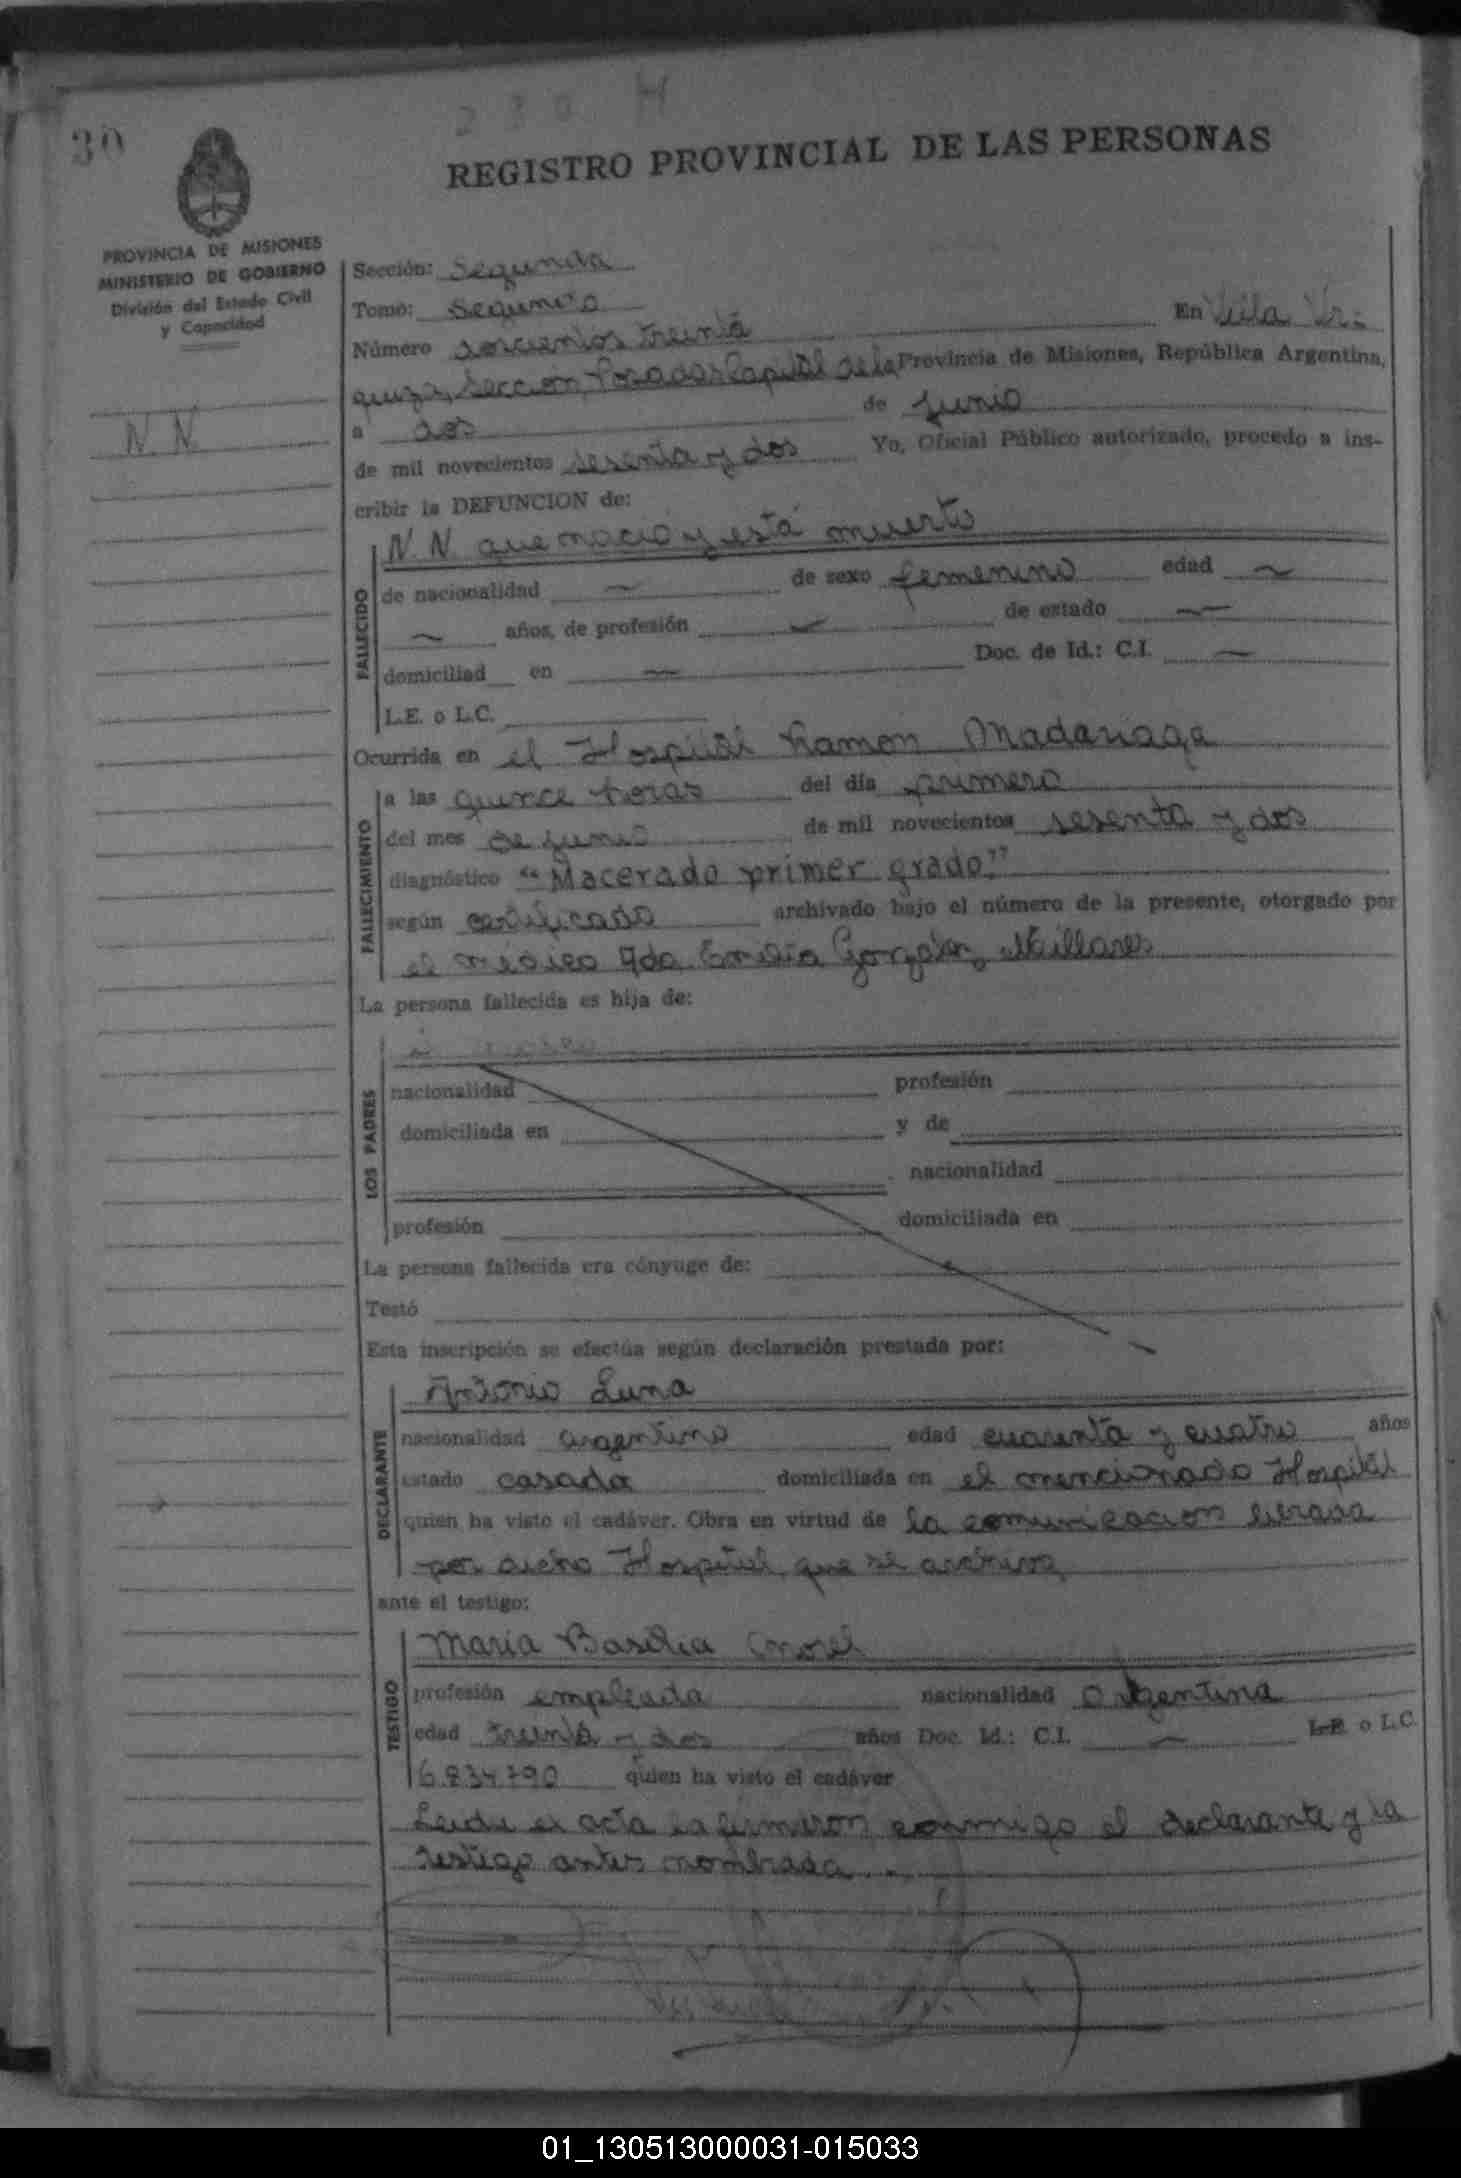 230 H
30
REGISTRO PROVINCIAL DE LAS PERSONAS
PROVINCIA DE MISIONES
MINISTERIO DE GOBIERNO
División del Estado Civil
y Capacidad
N.N.
Sección: Segunda
Tomo: Segundo
Número doscientos treinta En Villa Ur-
quiza, Sección, Posadas Capital de la Provincia de Misiones, República Argentina,
a dos de junio
de mil novecientos sesenta y dos Yo, Oficial Público autorizado, procedo a ins-
cribir la DEFUNCION de:
FALLECIDO
N.N. que nació y está muerto
de nacionalidad — de sexo femenino edad —
— años, de profesión — de estado —
domiciliad en — Doc. de Id.: C.I. —
L.E. o L.C.
Ocurrida en el Hospital Ramón Madariaga
FALLECIMIENTO
a las quince horas del día primero
del mes de junio de mil novecientos sesenta y dos
diagnóstico "Macerado primer grado"
según certificado archivado bajo el número de la presente, otorgado por
el médico Emilia Millares
La persona fallecida es hija de:
LOS PADRES
nacionalidad profesión
domiciliada en y de
nacionalidad
profesión domiciliada en
La persona fallecida era cónyuge de:
Testó
Esta inscripción se efectúa según declaración prestada por:
DECLARANTE
Antonio Luna
nacionalidad argentino edad cuarenta y cuatro años
estado casada domiciliada en el mencionado Hospital
quien ha visto el cadáver. Obra en virtud de la comunicación librada
por dicho Hospital, que se archiva
ante el testigo:
TESTIGO
María Basilia Morel
profesión empleada nacionalidad argentina
edad treinta y dos años Doc. Id.: C.I. — L.E. o L.C.
6.834.790 quien ha visto el cadáver
Leida el acta la firmaron conmigo el declarante y la
testigo antes nombrada..
01_130513000031-015033